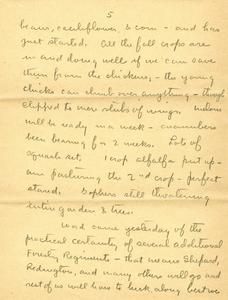 5
beans, cauliflower, & corn - and has
just started. All the fall crops are
in and doing well if we can save
them from the chickens, - the young
chicks can climb over anything - though
clipped to mere stubs of wings. melons
will be ready in a week - cucumbers
been bearing for 2 weeks. Lots of
squash set. 1 crop alfalfa put up -
am pasturing the 2nd crop - perfect
stand. Gophers still threatening
entire garden & trees.
Word came yesterday of the
practical certainty of several additional
Forestry Regiments - that means Shepard,
Redington, and many others will go and
rest of us will have to buck along best we